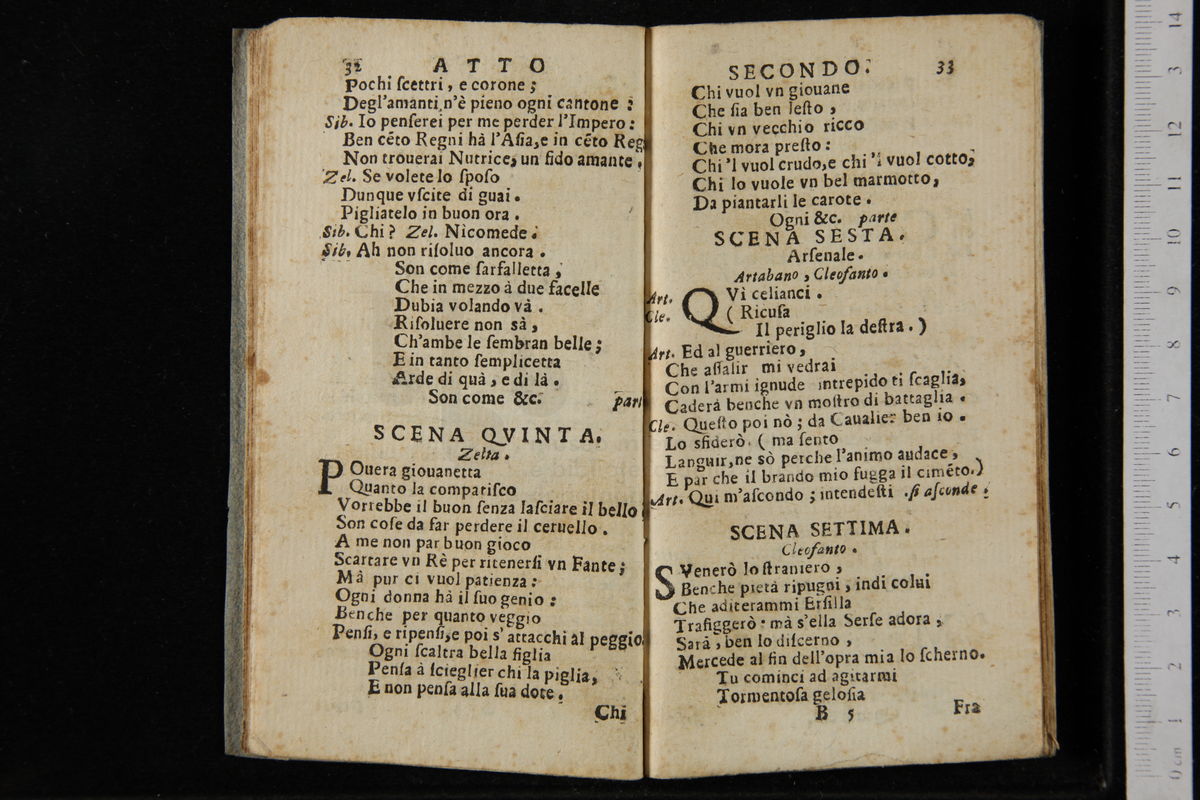 32 ATTO
Pochi ſcettri, e corone;
Degl'amanti n'è pieno ogni cantone:
Sib. Io penſerei per me perder l'Impero:
Ben cẽto Regni hà l'Aſia,e in cẽto Reg
Non trouerai Nutrice, un fido amante.
Zel. Se volete lo ſpoſo
Dunque vſcite di guai.
Pigliatelo in buon ora.
Sib. Chi? Zel. Nicomede.
Sib. Ah non riſoluo ancora.
Son come farfalletta,
Che in mezzo à due facelle
Dubia volando và.
Riſoluere non sà,
Ch'ambe le ſembran belle;
E in tanto ſemplicetta
Arde di quà, e di là.
Son come &c. part
SCENA QVINTA.
Zelta.
POuera giouanetta
Quanto la compatiſco
Vorrebbe il buon ſenza laſciare il bello
Son coſe da far perdere il ceruello.
A me non par buon gioco
Scartare vn Rè per ritenerſi vn Fante;
Mà pur ci vuol patienza:
Ogni donna hà il ſuo genio:
Benche per quanto veggio
Penſi, e ripenſi,e poi s'attacchi al peggio
Ogni ſcaltra bella figlia
Penſa à ſcieglier chi la piglia,
E non penſa alla ſua dote.
Chi
SECONDO. 33
Chi vuol vn giouane
Che ſia ben leſto,
Chi vn vecchio ricco
Che mora preſto:
Chi'l vuol crudo,e chi'l vuol cotto,
Chi lo vuole vn bel marmotto,
Da piantarli le carote.
Ogni &c. parte
SCENA SESTA.
Arſenale.
Artabano, Cleofanto.
Art. QVì celianci.
Cle. (Ricuſa
Il periglio la deſtra.)
Art. Ed al guerriero,
Che aſſalir mi vedrai
Con l'armi ignude intrepido ti ſcaglia,
Caderà benche vn moſtro di battaglia.
Cle. Queſto poi nò; da Caualier ben io.
Lo sfiderò. (ma ſento
Languir,ne sò perche l'animo audace,
E par che il brando mio fugga il cimẽto.)
Art. Qui m'aſcondo; intendeſti .ſi aſconde.
SCENA SETTIMA.
Cleofanto.
SVenerò lo ſtraniero,
Benche pietà ripugni, indi colui
Che aditerammi Erſilla
Trafiggerò: mà s'ella Serſe adora,
Sarà, ben lo diſcerno,
Mercede al fin dell'opra mia lo ſcherno.
Tu cominci ad agitarmi
Tormentoſa geloſia
B 5 Fra
0 cm 1 2 3 4 5 6 7 8 9 10 11 12 3 14